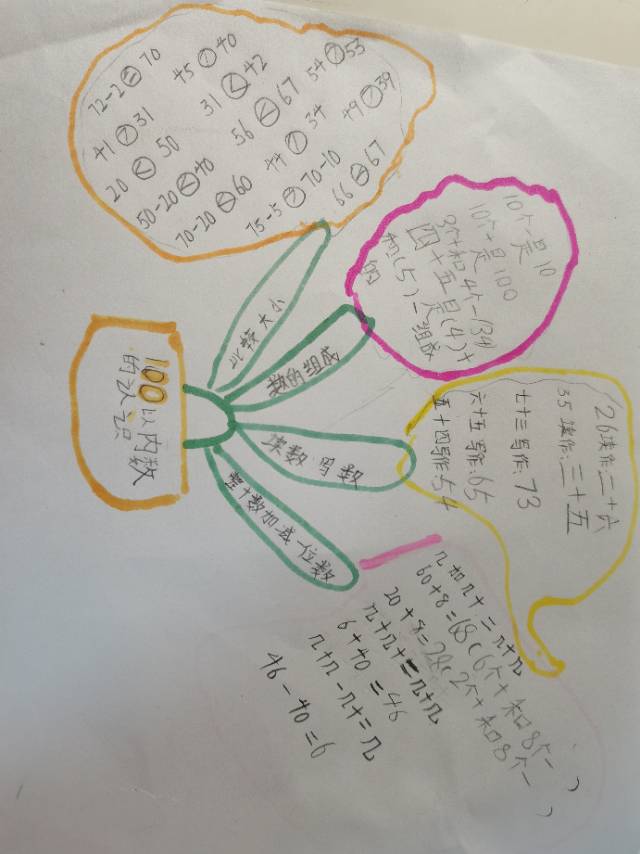 100以内数
的认识
比较大小
72-2=70 45>40
41>31 31<42 54>53
20<50 56<67 49>39
50-20<40 44>34
70-20<60 75-5>70-10 66<67
数的组成
10个一是10
10个十是100
3个十和4个一(34)
四十五是(4)十
和(5)一组成
的
读数 写数
26读作:二十六
35读作:三十五
七十三写作:73
六十五写作:65
五十四写作:54
整十数加减一位数
几加几十=几十几
60+8=68(6个十和8个一)
20+8=28(2个十和8个一)
几+几十=几十几
6+40=46
几十几-几十=几
46-40=6